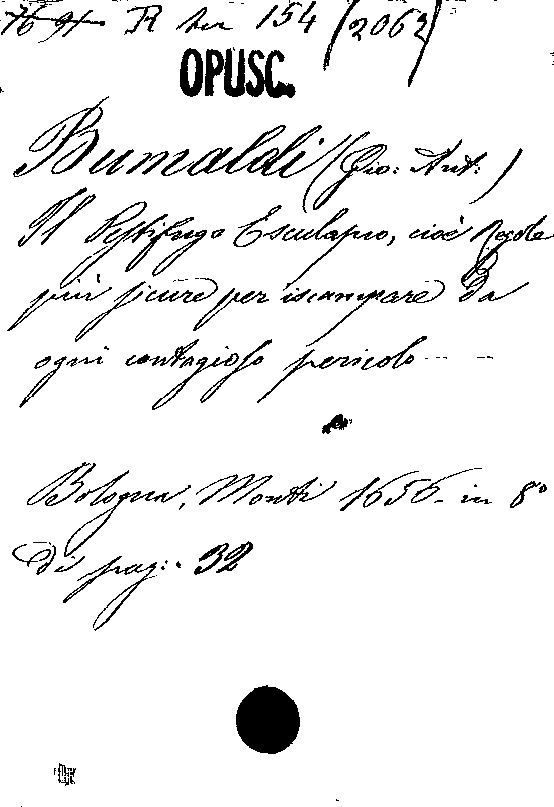 R ter 154 (2062)
OPUSC.
Bumaldi (Gio: Ant:)
Il Pestifugo Esculapio, cioè regole
più sicure per iscampare da
ogni contagioso pericolo - - -
Bologna, Monti 1656. in 8°
di pag: 32